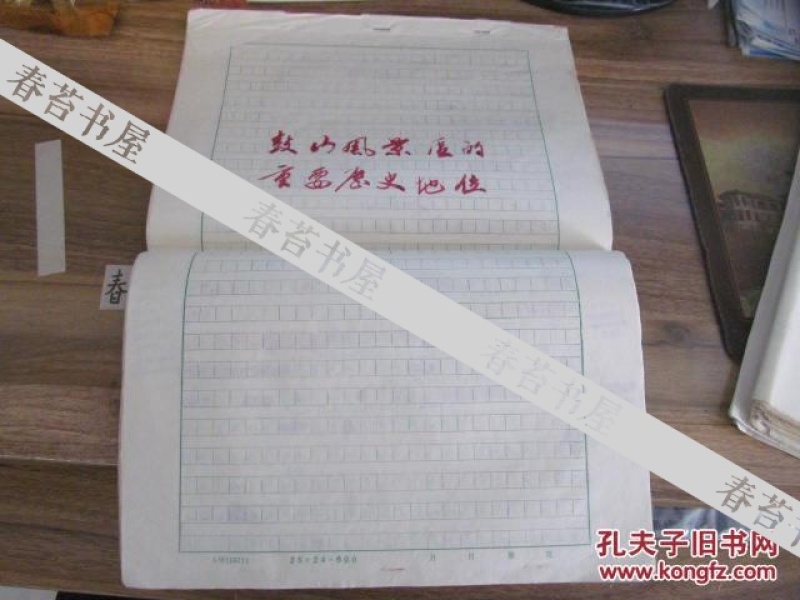 鼓山風景區的
重要歷史地位
春苔书屋
春苔书屋
春苔书屋
春苔书屋
春
25×24=600
孔夫子旧书网
www.kongfz.com